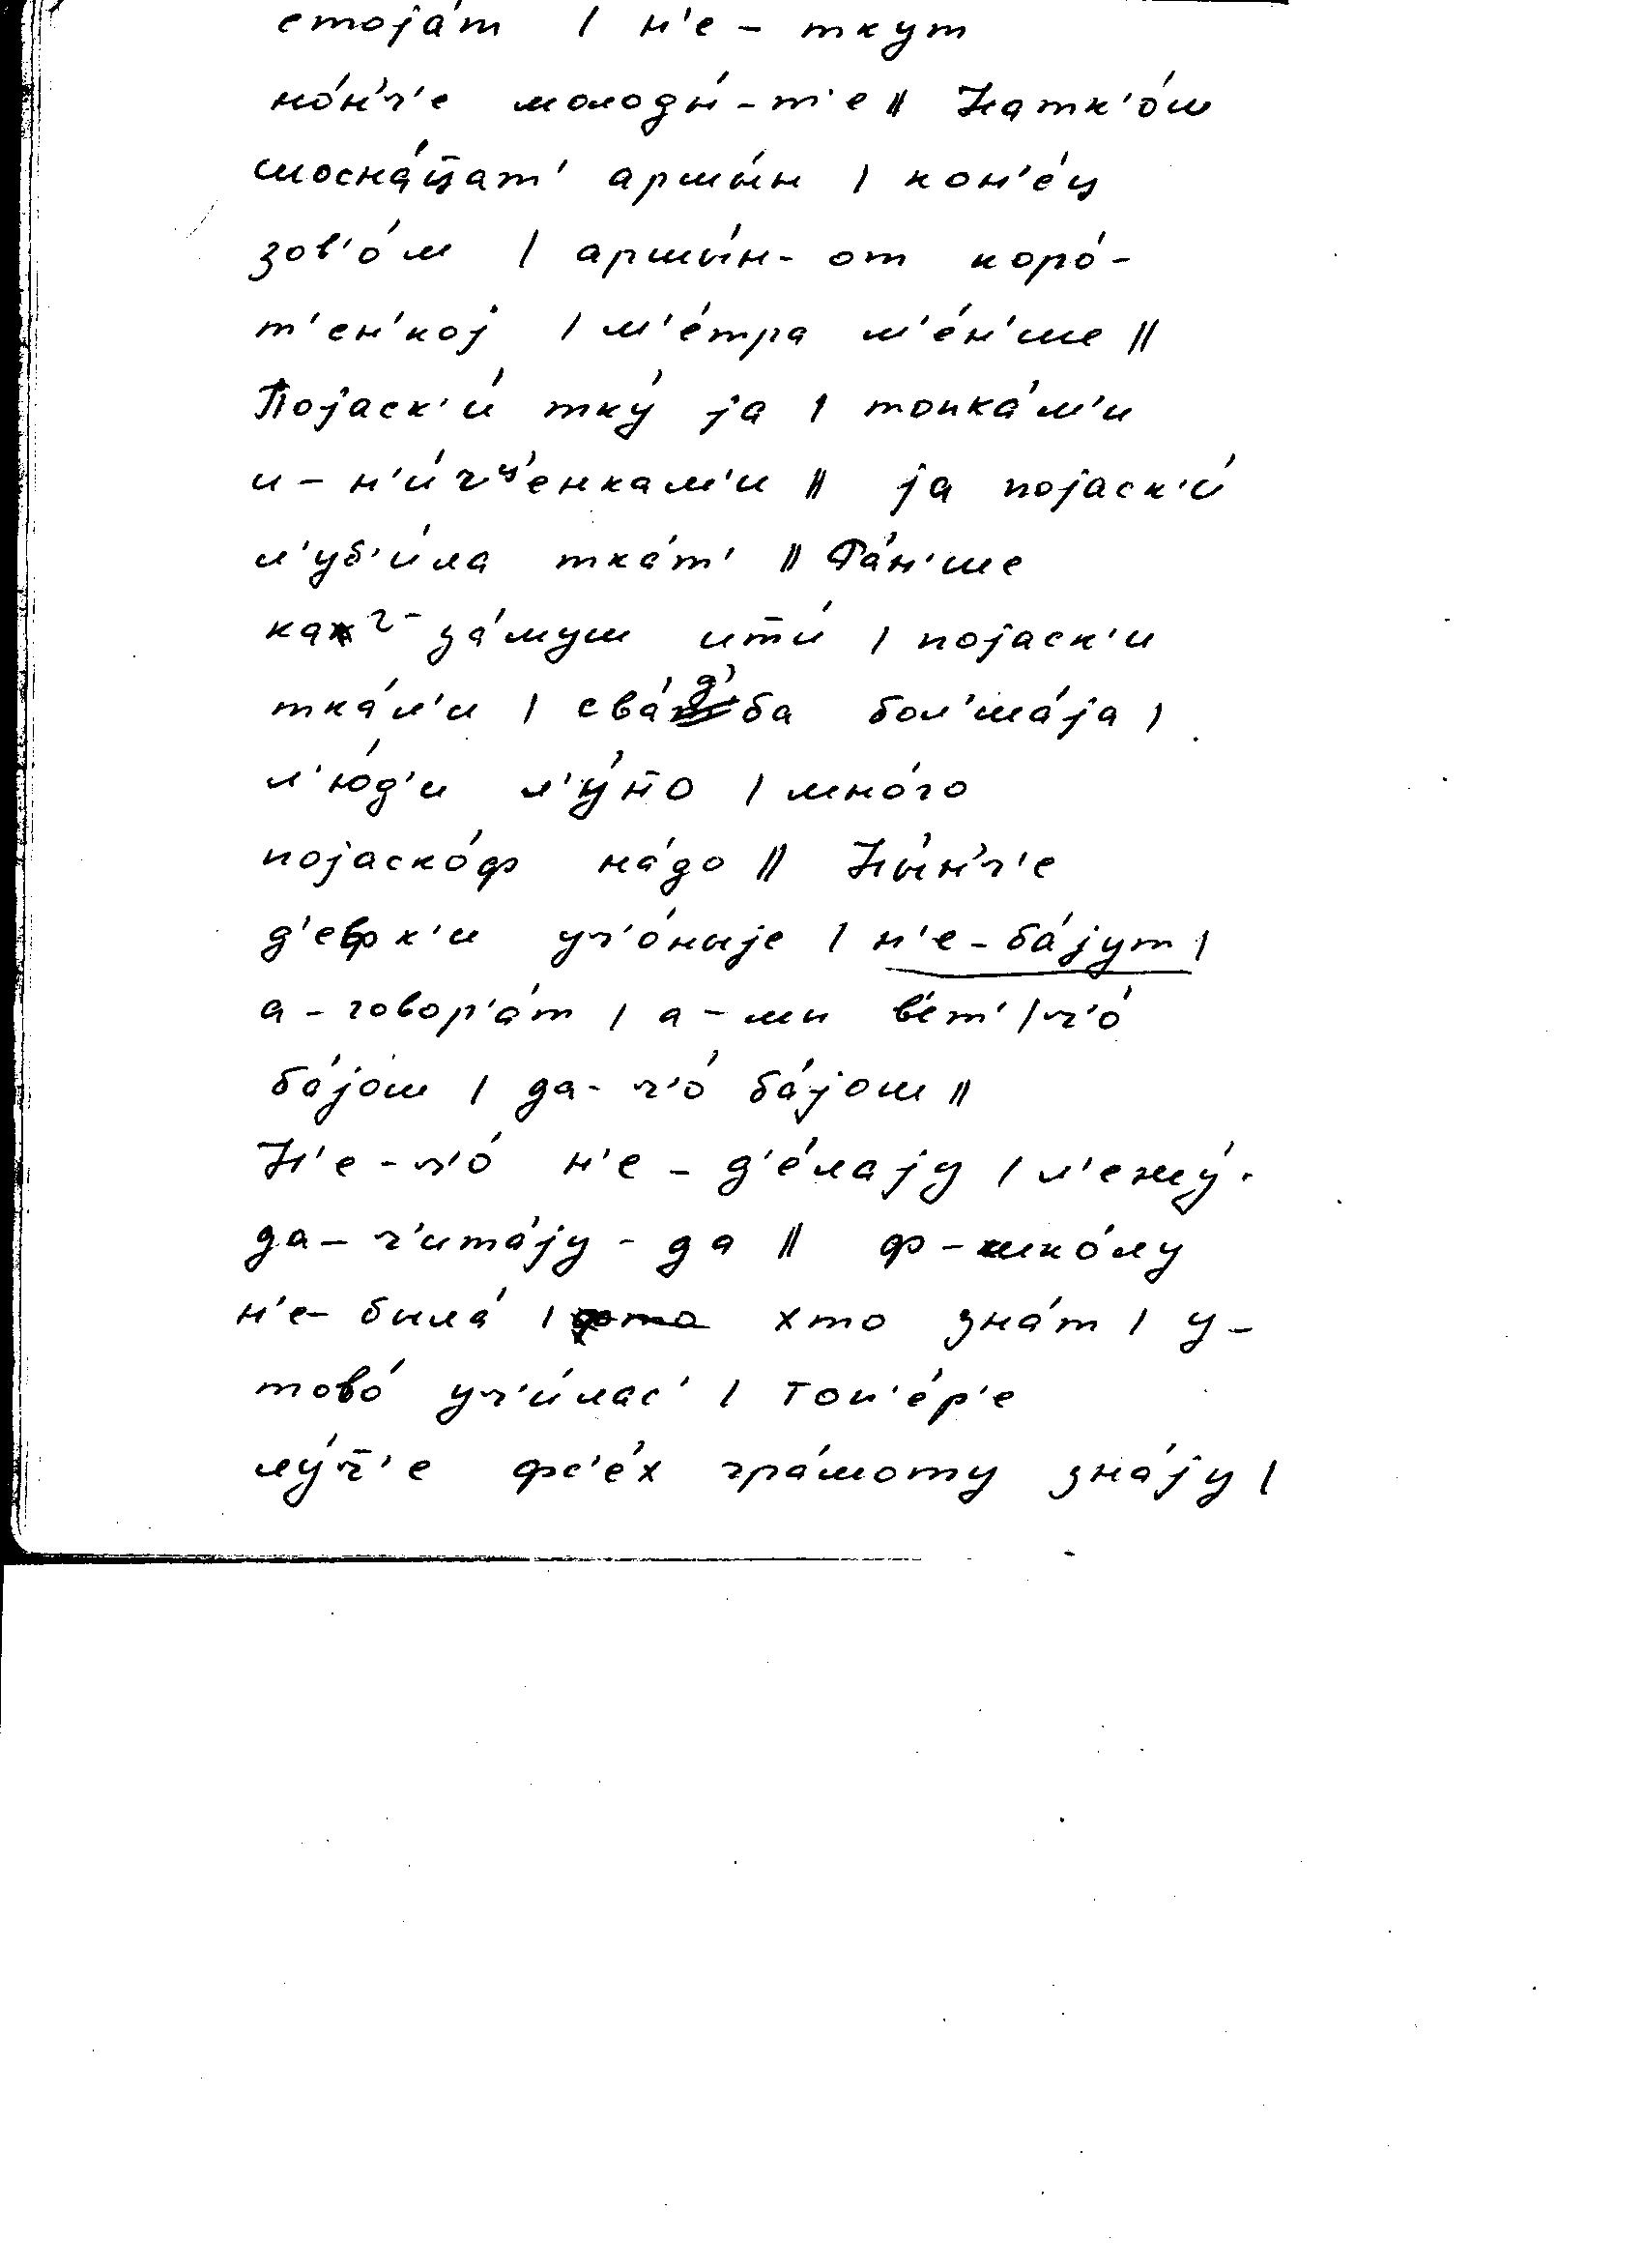 стоjа́т | н'е – ткут
но́н'ч'е молоды́ – т'е || Натк'о́ш
шосна́ц̄ат' аршы́н | кон'е́ц
зов'о́м | аршы́н- от коро́-
т'ен'коj | м'е́тра м'е́н'ше ||
Поjаск'и́ тку́ jа | топка́м'и
и – н'и́ч'енкам'и || jа поjаск'и́
л'уб'и́ла тка́т' || Ра́н'ше
каг- за́муш ит̄и́ | поjаск'и
тка́л'и | сва́д'ба бол'ша́jа |
л'ю́д'и л'у́но | мно́го
поjаско́ф на́до || Ны́н'ч'е
д'ефк'и уч'о́ныjе | н'е – ба́jут |
а – говор'а́т | а – мы в'е́т' | ч'о́
ба́jош | да- ч'о́ ба́jош ||
Н'е – ч'о́ н'е – д'е́лаjу | л'ежу́-
да – ч'ита́jу - да || ф – шко́лу
н'е– была́ | хто зна́т | у –
тово́ уч'и́лас' | топ'е́р'е
лу́ч̄'е фс'е́х гра́моту зна́jу |